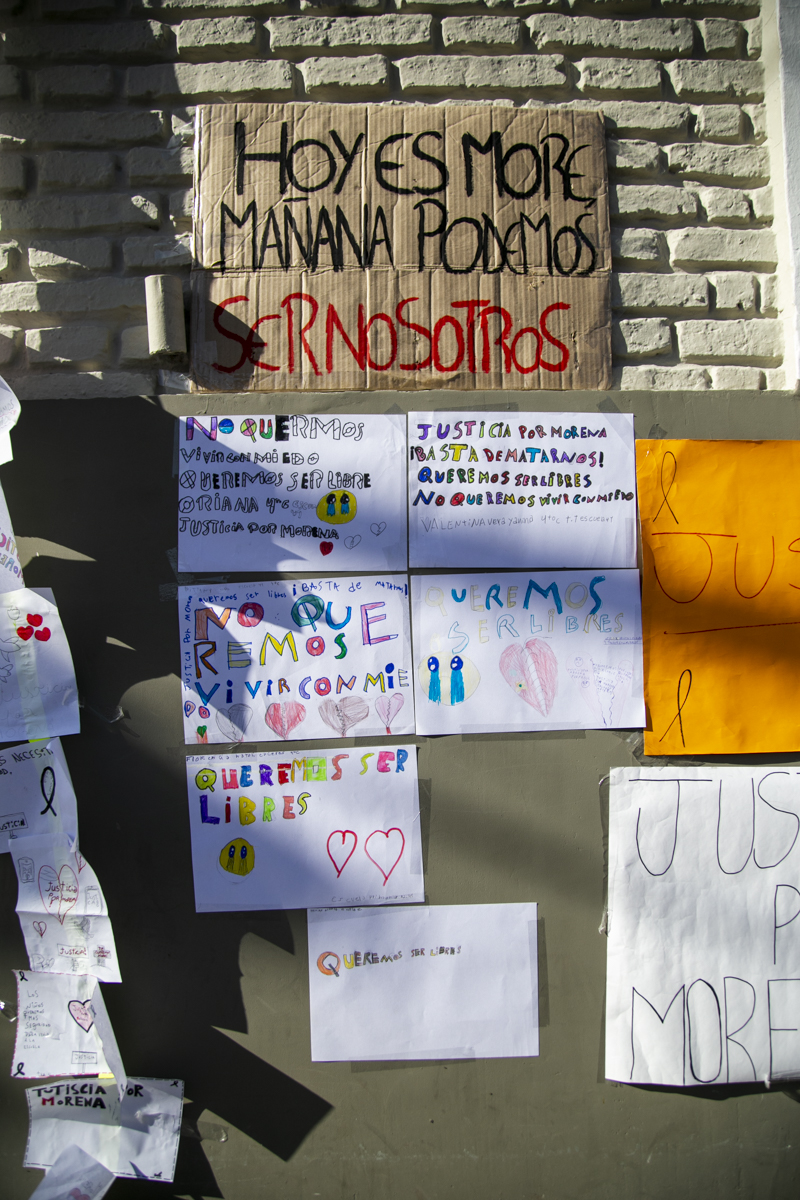 HOY ES MORE,
MAÑANA PODEMOS
SER NOSOTROS
NO QUERMOS
VIVIR CON MIEDO
QUEREMOS SER LIBRE
ORIANA 4TO C
JUSTICIA POR MORENA
JUSTICIA POR MORENA
¡BASTA DE MATARNOS!
QUEREMOS SER LIBRES
NO QUEREMOS VIVIR CON MIEDO
VALENTINA vera 4toC
queremos ser libres ¡BASTA de MATARNOS!
JUSTICIA POR MORE
NO QUE
REMOS
VIVIR CON MIE
QUEREMOS
SER LIBRES
QUEREMOS SER
LIBRES
QUEREMOS SER LIBRES
JUS
JUST
P
MORE
JUSTICIA
Justicia
por
JUSTICIA
TUTISCIA POR
MORENA